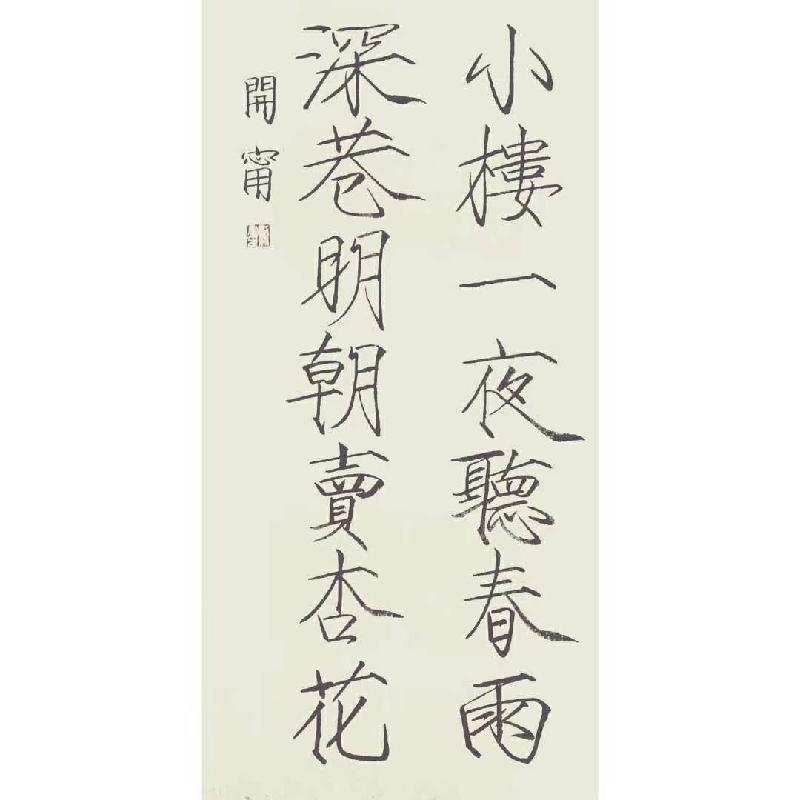 小樓一夜聽春雨
深巷明朝賣杏花
開甯